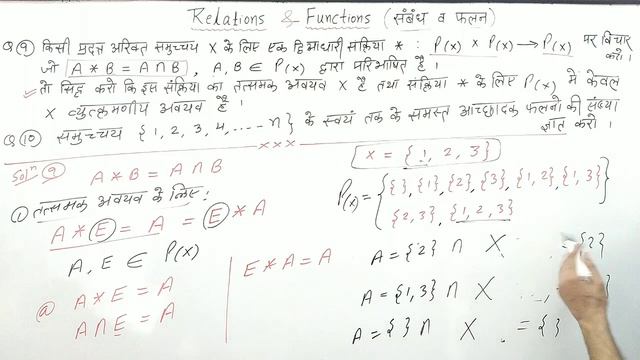 Relations & Functions (संबंध व फलन)
Q ⑨ किसी प्रदत्त अरिक्त समुच्चय X के लिए एक द्विआधारी संक्रिया * : P(x) × P(x) → P(x) पर विचार करो।
जो A * B = A ∩ B , A, B ∈ P(x) द्वारा परिभाषित है।
तो सिद्ध करो कि इस संक्रिया का तत्समक अवयव X है तथा संक्रिया * के लिए P(x) में केवल
X व्युत्क्रमणीय अवयव है।
Q ⑩ समुच्चय {1, 2, 3, 4, ---- n} के स्वयं तक के समस्त आच्छादक फलनों की संख्या
ज्ञात करो।
×××
Solⁿ ⑨ A * B = A ∩ B
① तत्समक अवयव के लिए:
A * E = A = E * A
A, E ∈ P(x)
ⓐ A * E = A
A ∩ E = A
E * A = A
X = {1, 2, 3}
P(x) = { { }, {1}, {2}, {3}, {1, 2}, {1, 3}
{2, 3}, {1, 2, 3} }
A = {2} ∩ X = {2}
A = {1, 3} ∩ X
A = { } ∩ X = { }